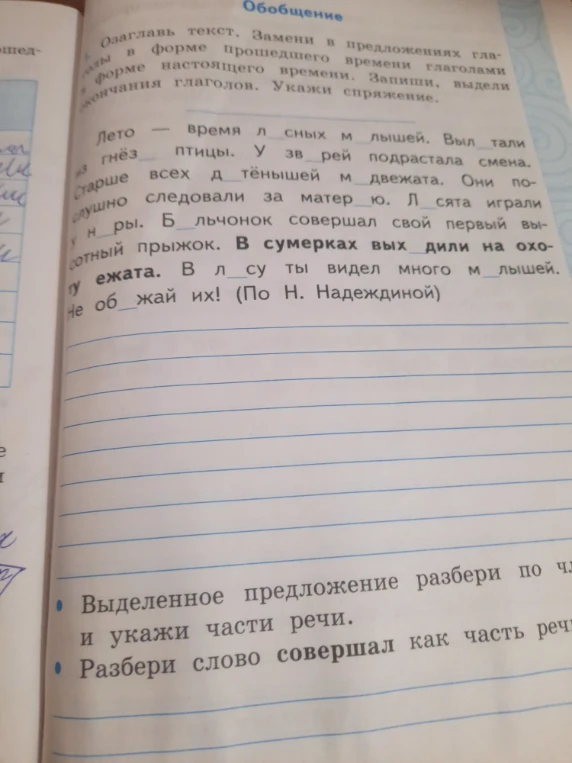 ошед-
Обобщение
Озаглавь текст. Замени в предложениях гла-
голы в форме прошедшего времени глаголами
в форме настоящего времени. Запиши, выдели
окончания глаголов. Укажи спряжение.
Лето — время л_сных м_лышей. Выл_тали
из гнёз_ птицы. У зв_рей подрастала смена.
Старше всех д_тёнышей м_двежата. Они по-
слушно следовали за матер_ю. Л_сята играли
у н_ры. Б_льчонок совершал свой первый вы-
сотный прыжок. В сумерках вых_дили на охо-
ту ежата. В л_су ты видел много м_лышей.
Не об_жай их! (По Н. Надеждиной)
• Выделенное предложение разбери по чл
и укажи части речи.
• Разбери слово совершал как часть реч